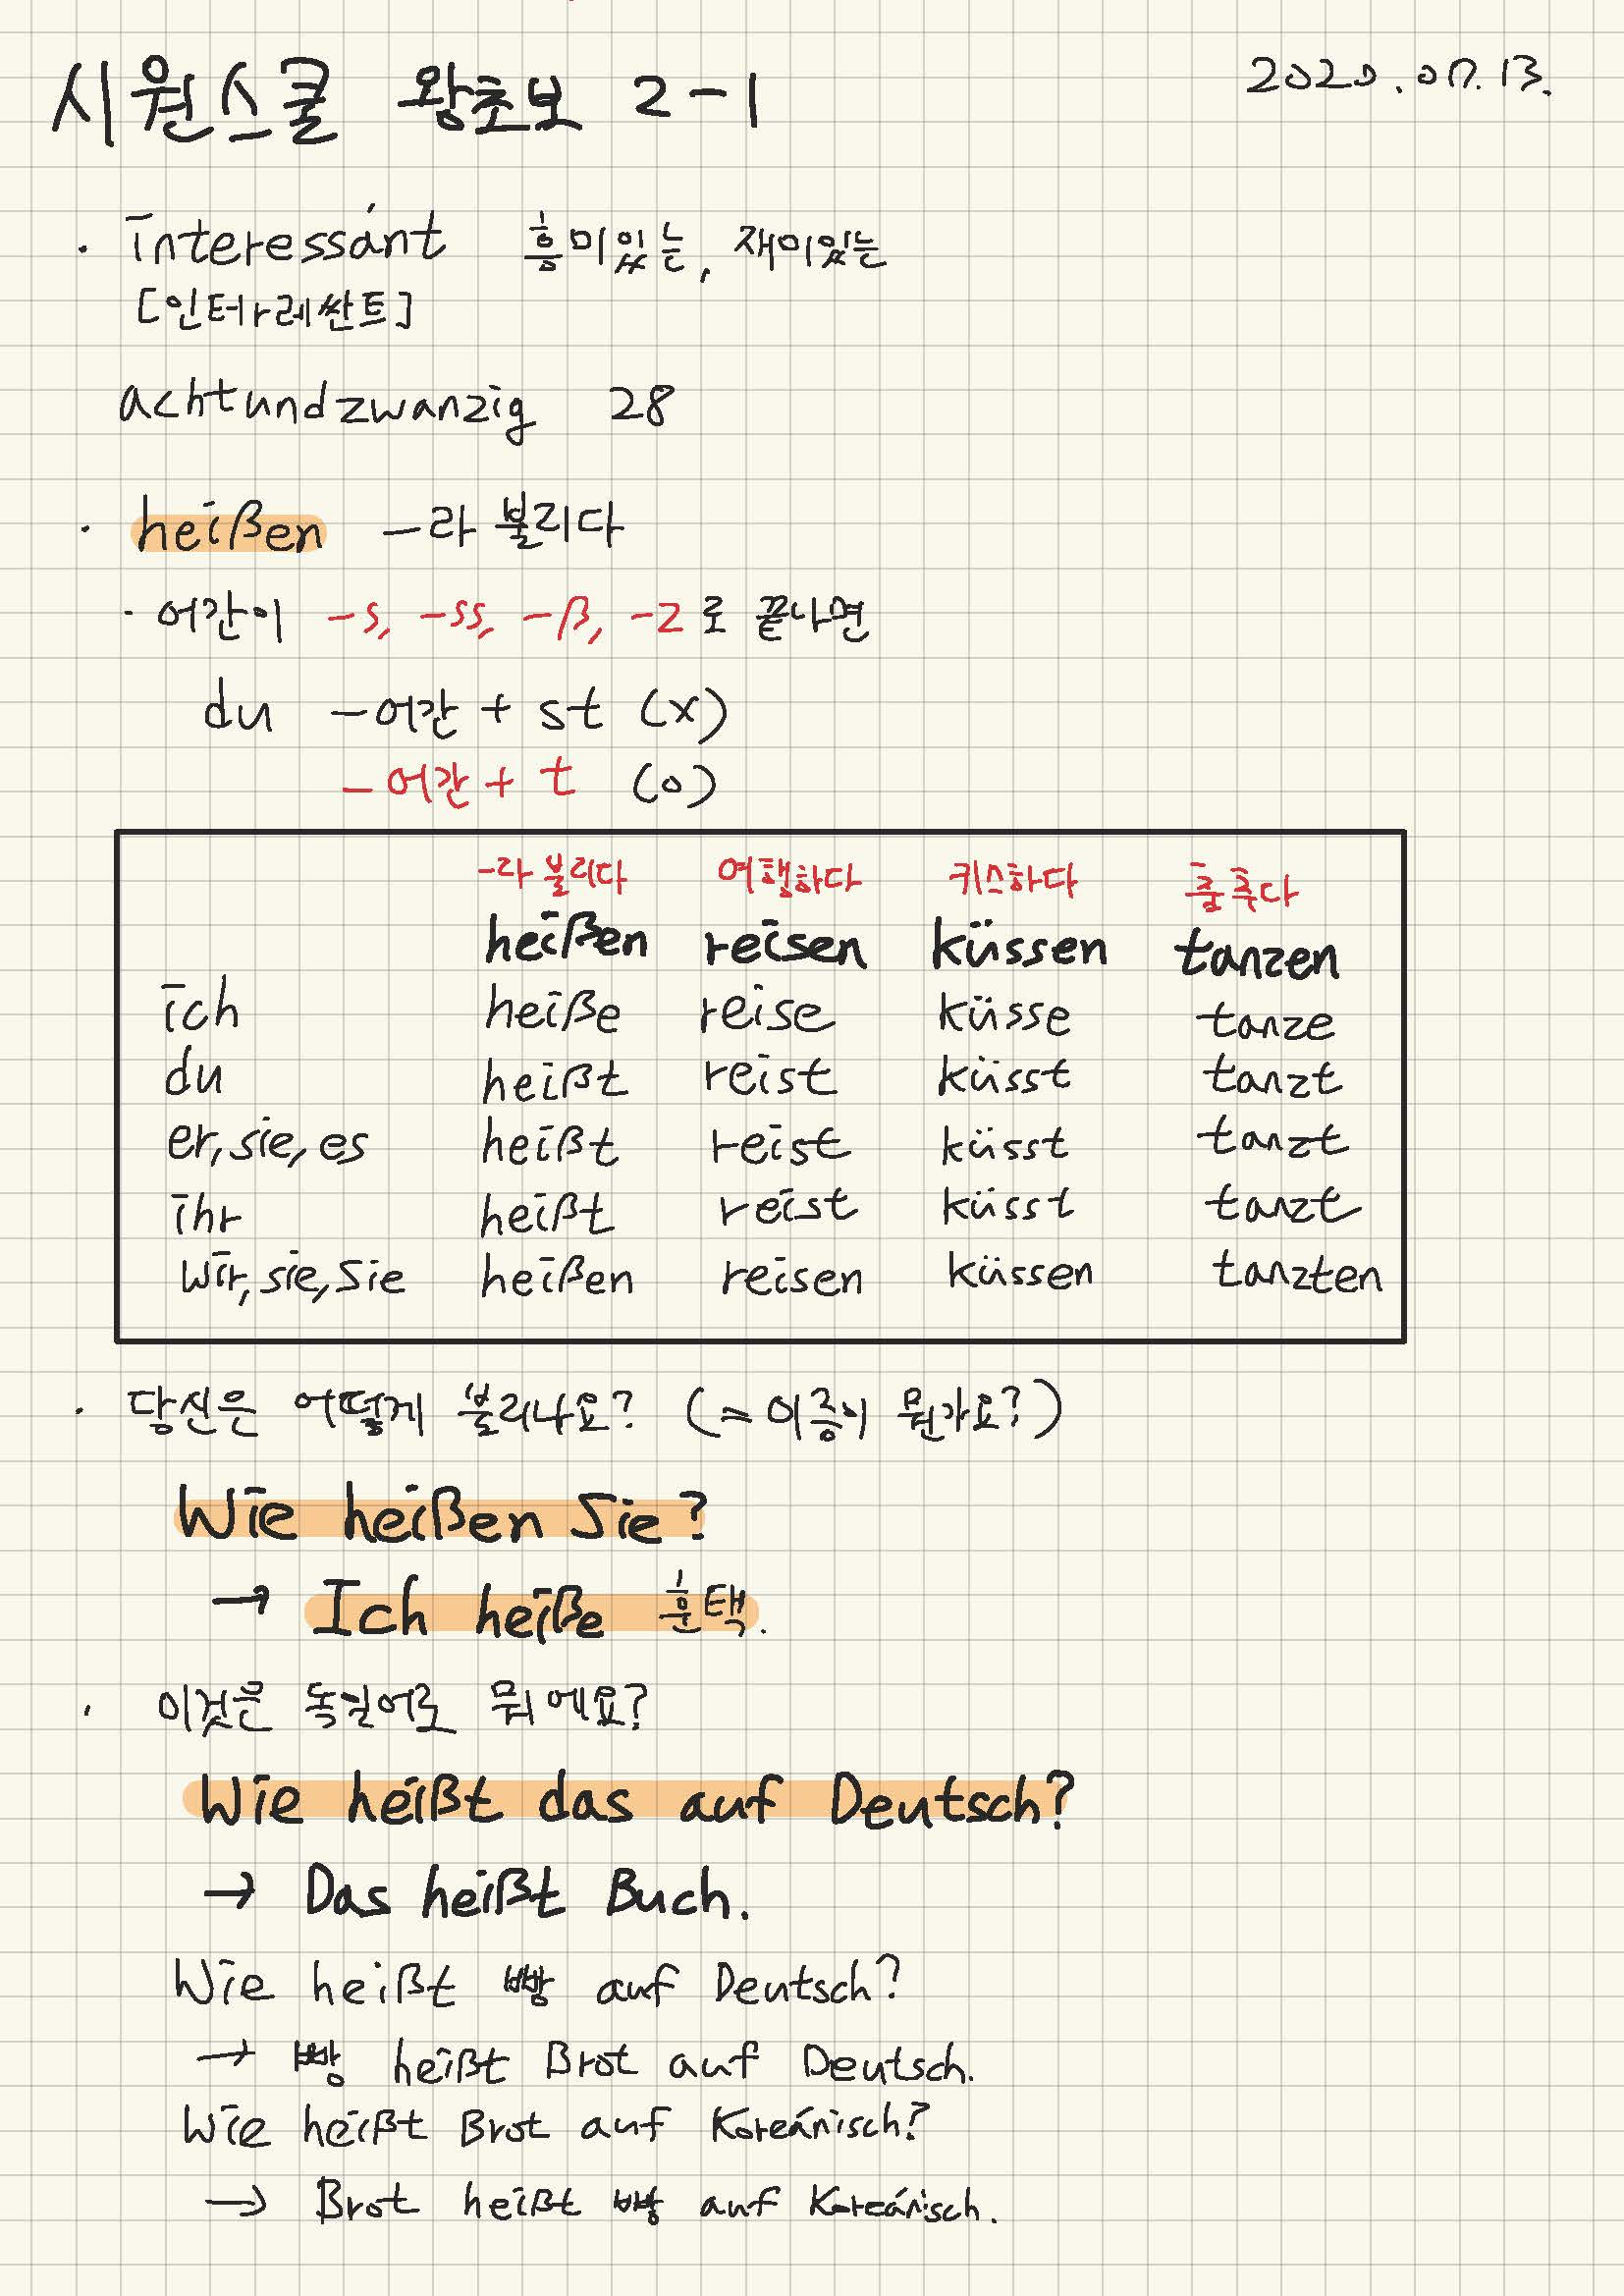 시원스쿨 왕초보 2-1 2020.07.13.
· interessánt 흥미있는, 재미있는
[인테레싼트]
achtundzwanzig 28
· heißen -라 불리다
- 어간이 -s, -ss, -ß, -z로 끝나면
du -어간 + st (x)
-어간 + t (o)
-라 불리다 여행하다 키스하다 춤추다
heißen reisen küssen tanzen
ich heiße reise küsse tanze
du heißt reist küsst tanzt
er, sie, es heißt reist küsst tanzt
ihr heißt reist küsst tanzt
wir, sie, Sie heißen reisen küssen tanzten
· 당신은 어떻게 불리나요? (=이름이 뭔가요?)
Wie heißen Sie?
→ Ich heiße 훈택.
· 이것은 독일어로 뭐에요?
Wie heißt das auf Deutsch?
→ Das heißt Buch.
Wie heißt 빵 auf Deutsch?
→ 빵 heißt Brot auf Deutsch.
Wie heißt Brot auf Koreánisch?
→ Brot heißt 빵 auf Koreánisch.